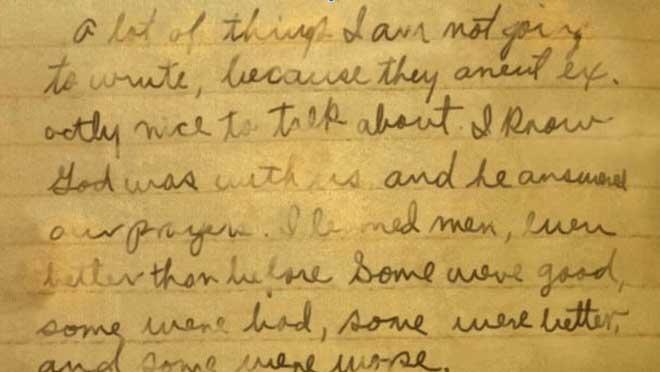 A lot of things I am not going
to wrute, because they arent ex.
actly nice to talk about. I know
God was with us and he answered
our prayers. I learned men, even
better than before Some were good,
some were bad, some were better,
and some were worse.